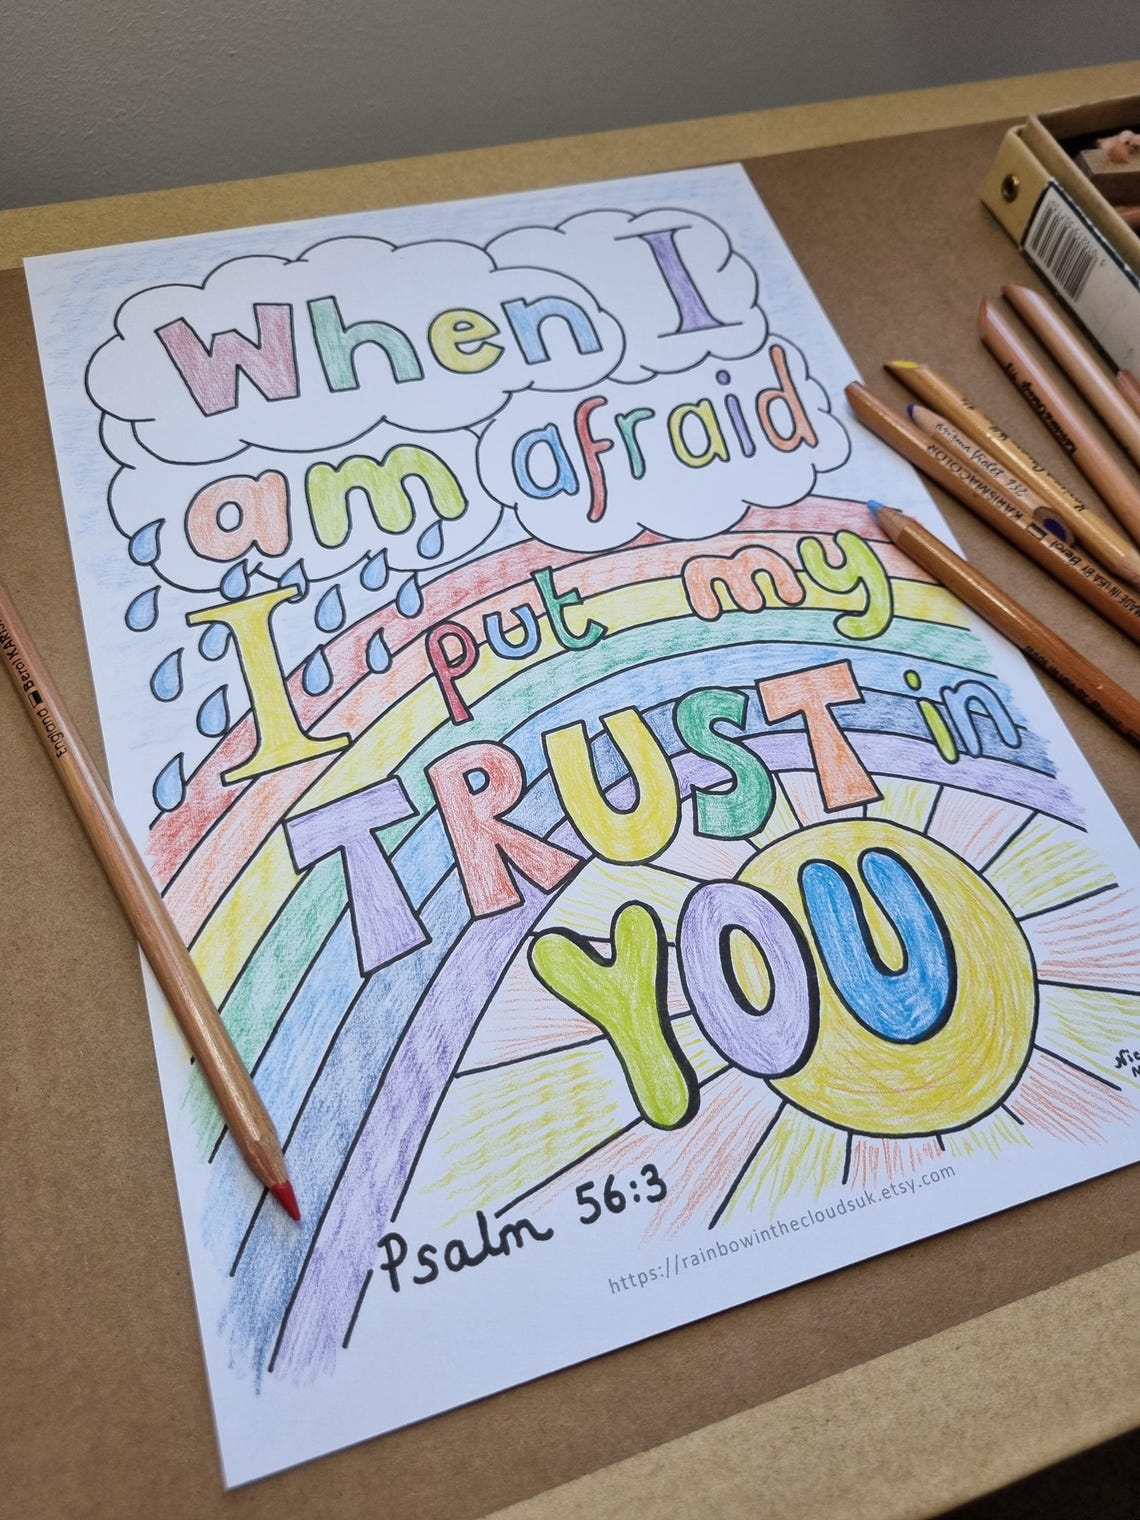 When I
am afraid
I put my
TRUST in
YOU
Psalm 56:3
https://rainbowinthecloudsuk.etsy.com
England Berol KARIS
KARISMACOLOR
MADE IN USA BY Berol